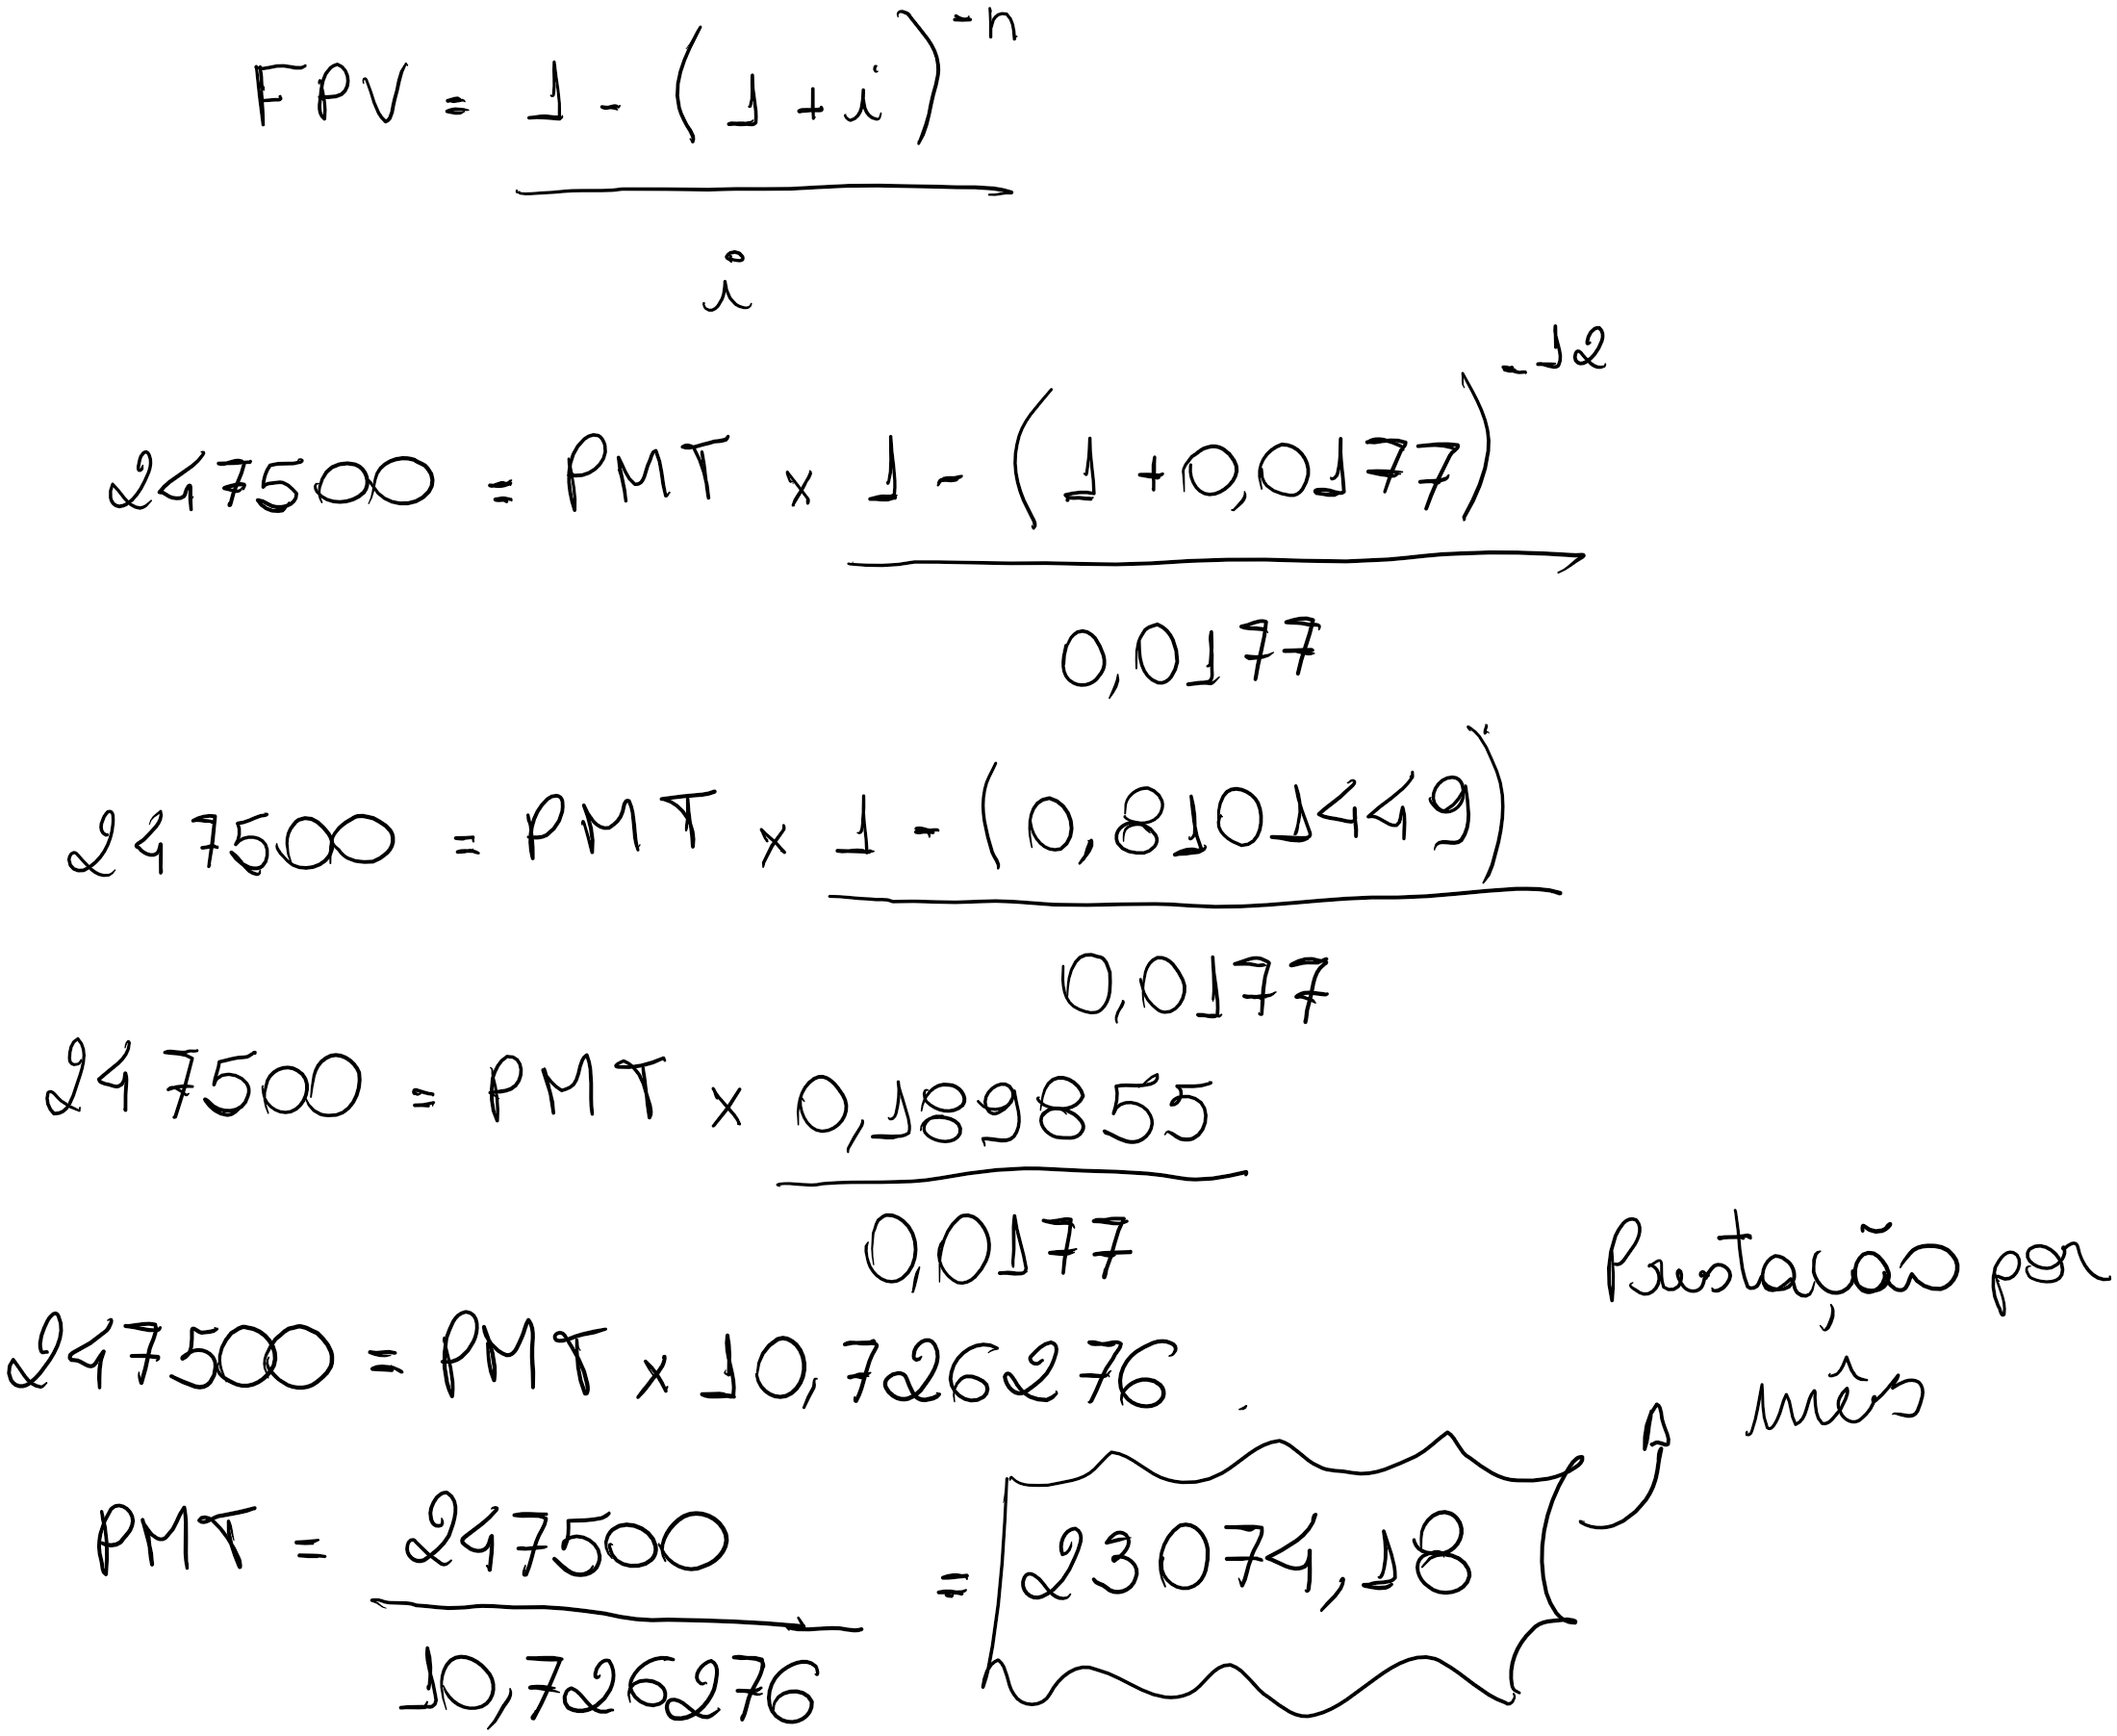 FPV = 1 - (1 + i)^-n
i
247500 = PMT x 1 - (1 + 0,0177)^-12
0,0177
247500 = PMT x 1 - (0,8101449)
0,0177
247500 = PMT x 0,189855
0,0177
247500 = PMT x 10,726276
PMT = 247500 = 23074,18
10,726276
Prestação por
mês